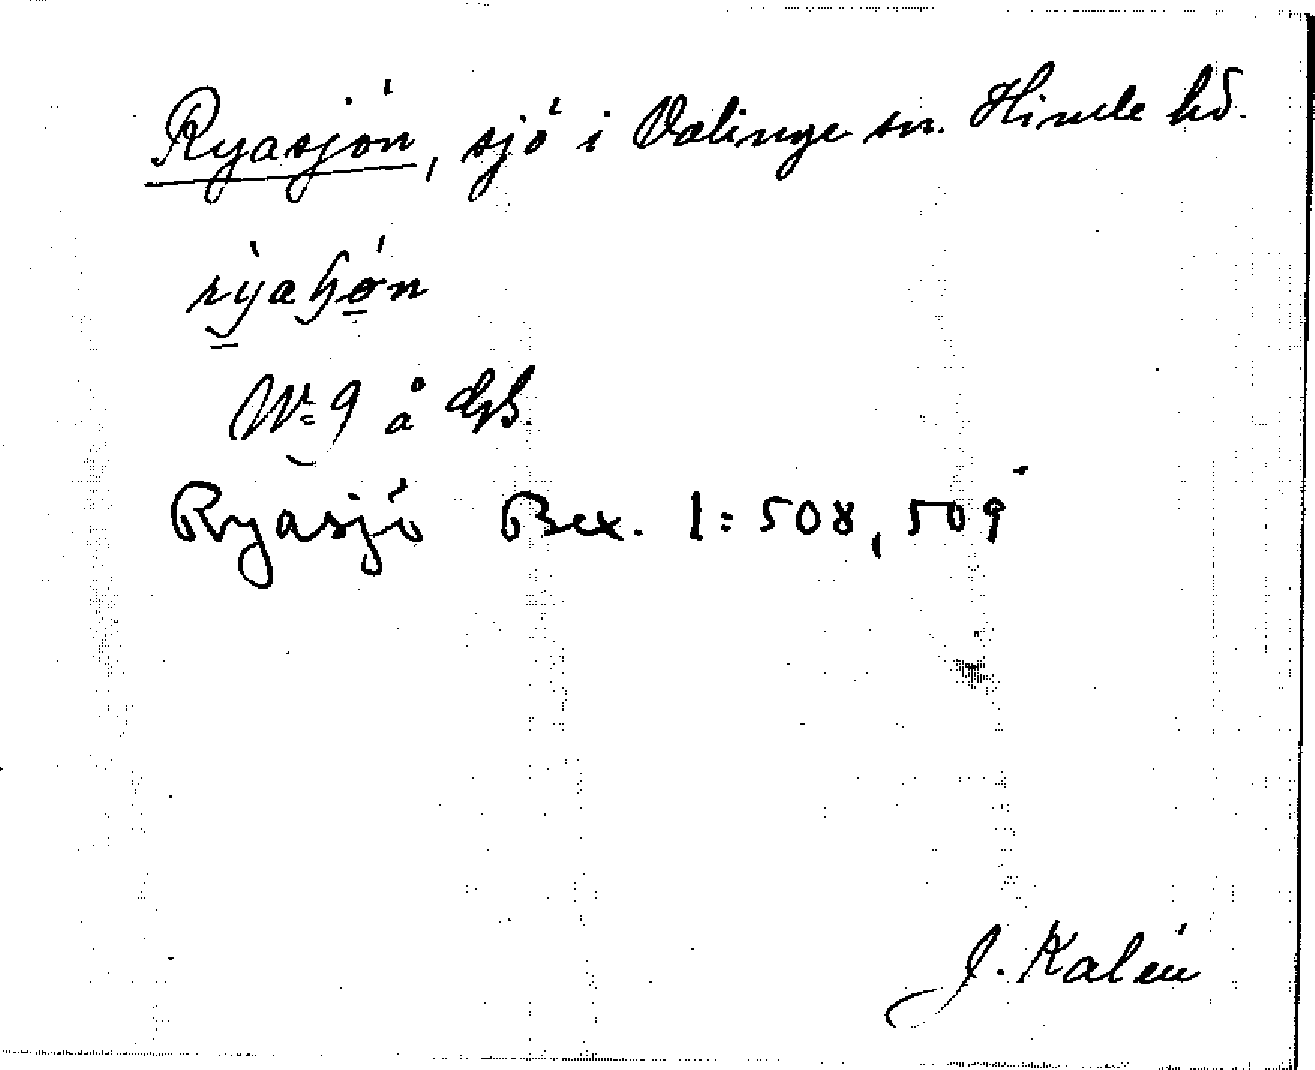 Ryasjön, sjö i Valinge sn. Himle hd.
rỳaɧǿn
Nr 9 å GSK.
Ryasjö Bex. 1: 508, 509
J. Kalén